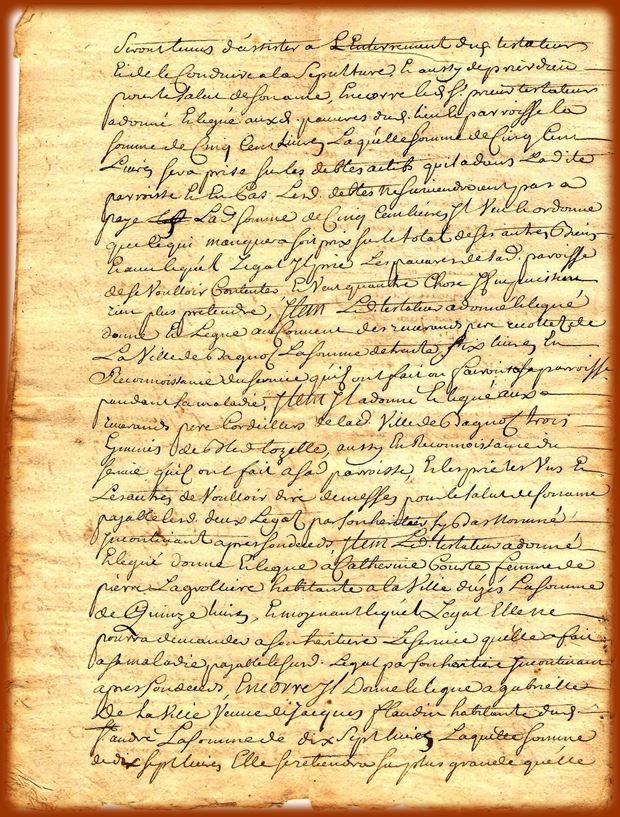 Seront tenus d'assister a L'Enterrement dud testateur
Et de le Conduire a la Sepulture, Et aussy de prier dieu
pour le salut de son ame, Encorre led Sr prieur testateur
a donné Et legué aux d. pauvres dud. lieu Et parroisse la
somme de Cinq Cent Livres Laquelle somme de Cinq Cent
Livres sera prise sur les debtes actifs quil a dans Ladite
parroisse Et En Cas lesd. debtes ne suviendroient pas a
paye La d somme de Cinq Cent livres Il Veut Et ordonne
que ce qui manquera soit pris sur le total de ses autres biens
Et avec lequel Legat Il prie Les pauvres de lad. parroisse
de se Voulloir Contenter Et Vout quautre Chose Ils ne puissent
rien plus pretendre, Item Led. testateur a donné Et legué
donne Et Legue au Couvent des reverands pere recollet de
La Ville de Bagnol La somme de trente six livres En
Reconnoissance du service quils ont fait ou fairont a sa parroisse
pendant sa maladie, Item Il a donné Et legué aux
reverands pere Cordeliers de lad. Ville de Bagnol trois
Eymines de bled tozelle, aussy En Reconnoissance du
service quils ont fait a sad parroisse, Et les prie les Uns Et
Les autres de Voulloir dire de messes pour le salut de son ame
payable lesd. deux Legat par son heritier, sy bas Nommé
Incontinant apres son deces, Item Led. testateur a donné
Et legué donne Et legue a Catherine Courte femme de
pierre Lagrolliere habitante a la Ville d'uzés La somme
de Quinze livres, Et moyenant lequel Legat Elle ne
pourra demander a son heritiere Le service quelle a fait
a sa maladie payable led. Legat par son heritier Incontinant
apres son deces, Encorre Il Donne Et legue a gabrielle
de La Ville Veuve de Jacques flandin habitante dud.
St andré La somme de dix sept livres Laquelle somme
de dix sept livres Elle se retiendra sur plus grande quelle